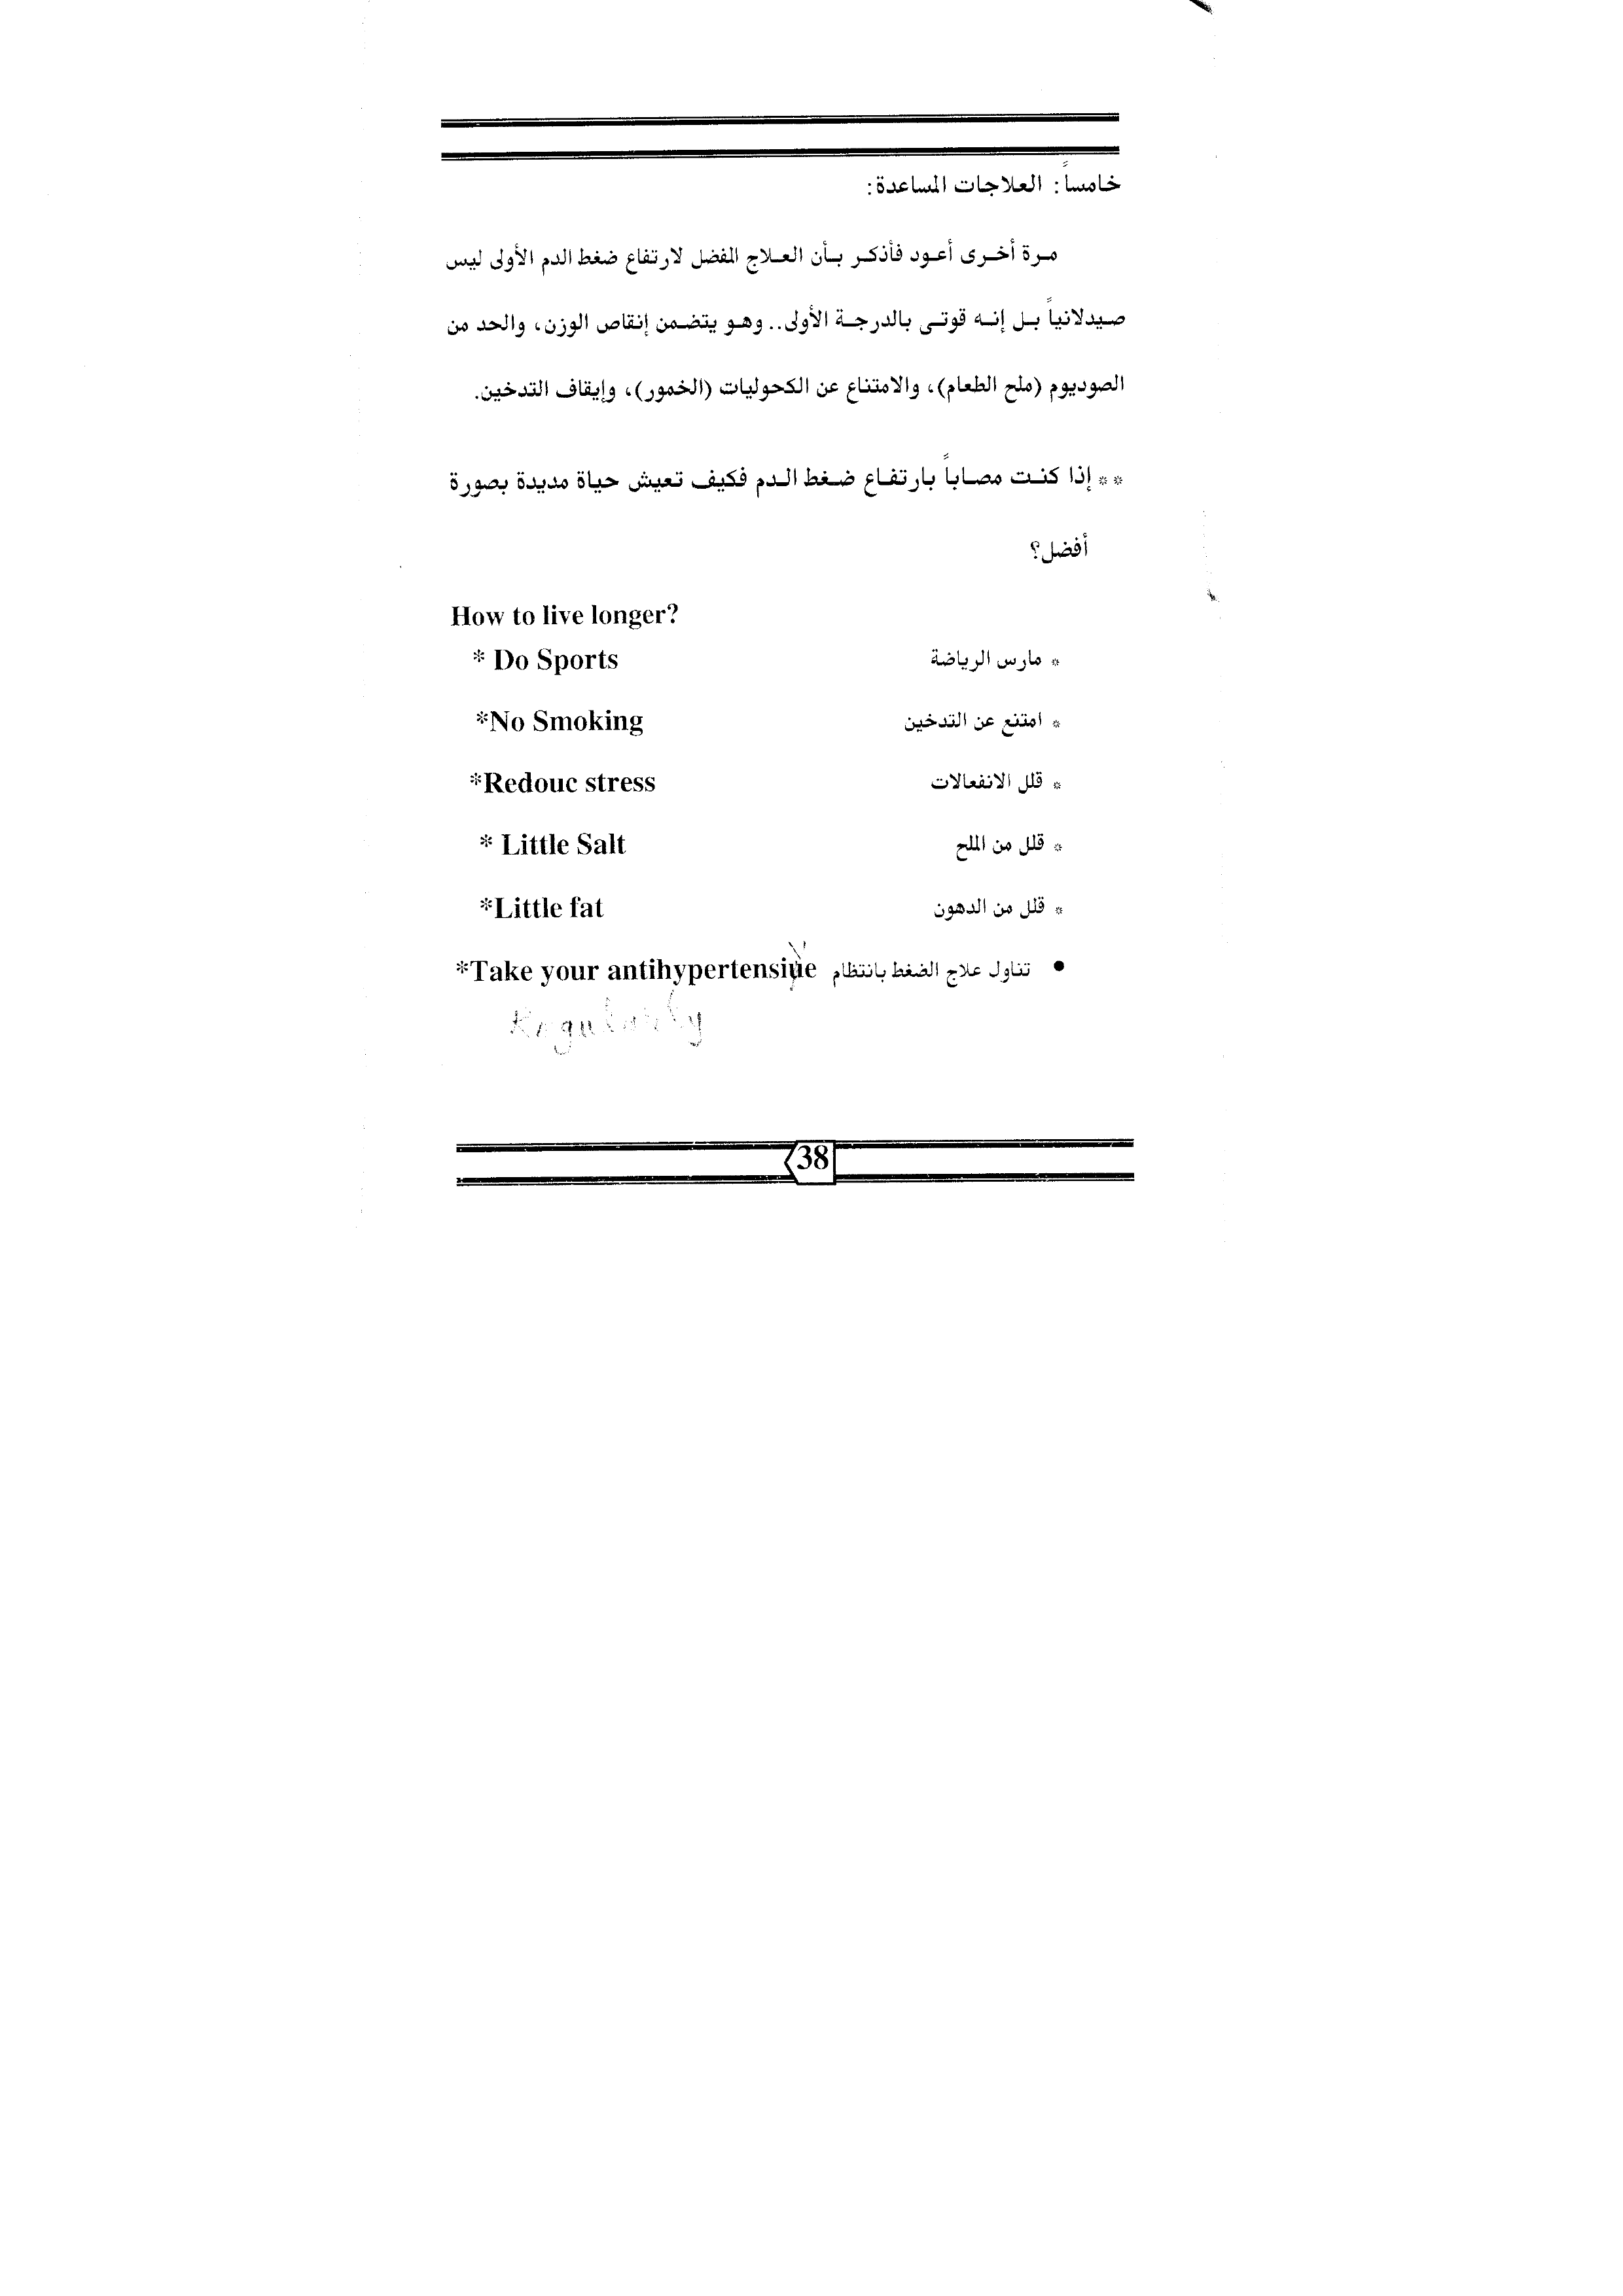 خامساً: العلاجات المساعدة:
مرة أخرى أعود فأذكر بأن العلاج المفضل لارتفاع ضغط الدم الأولى ليس
صيدلانياً بل إنه قوتى بالدرجة الأولى.. وهو يتضمن إنقاص الوزن، والحد من
الصوديوم (ملح الطعام)، والامتناع عن الكحوليات (الخمور)، وإيقاف التدخين.
** إذا كنت مصاباً بارتفاع ضغط الدم فكيف تعيش حياة مديدة بصورة
أفضل؟
How to live longer?
* مارس الرياضة * Do Sports
* امتنع عن التدخين *No Smoking
* قلل الانفعالات *Redouc stress
* قلل من الملح * Little Salt
* قلل من الدهون *Little fat
• تناول علاج الضغط بانتظام *Take your antihypertensiue
Regularly
38